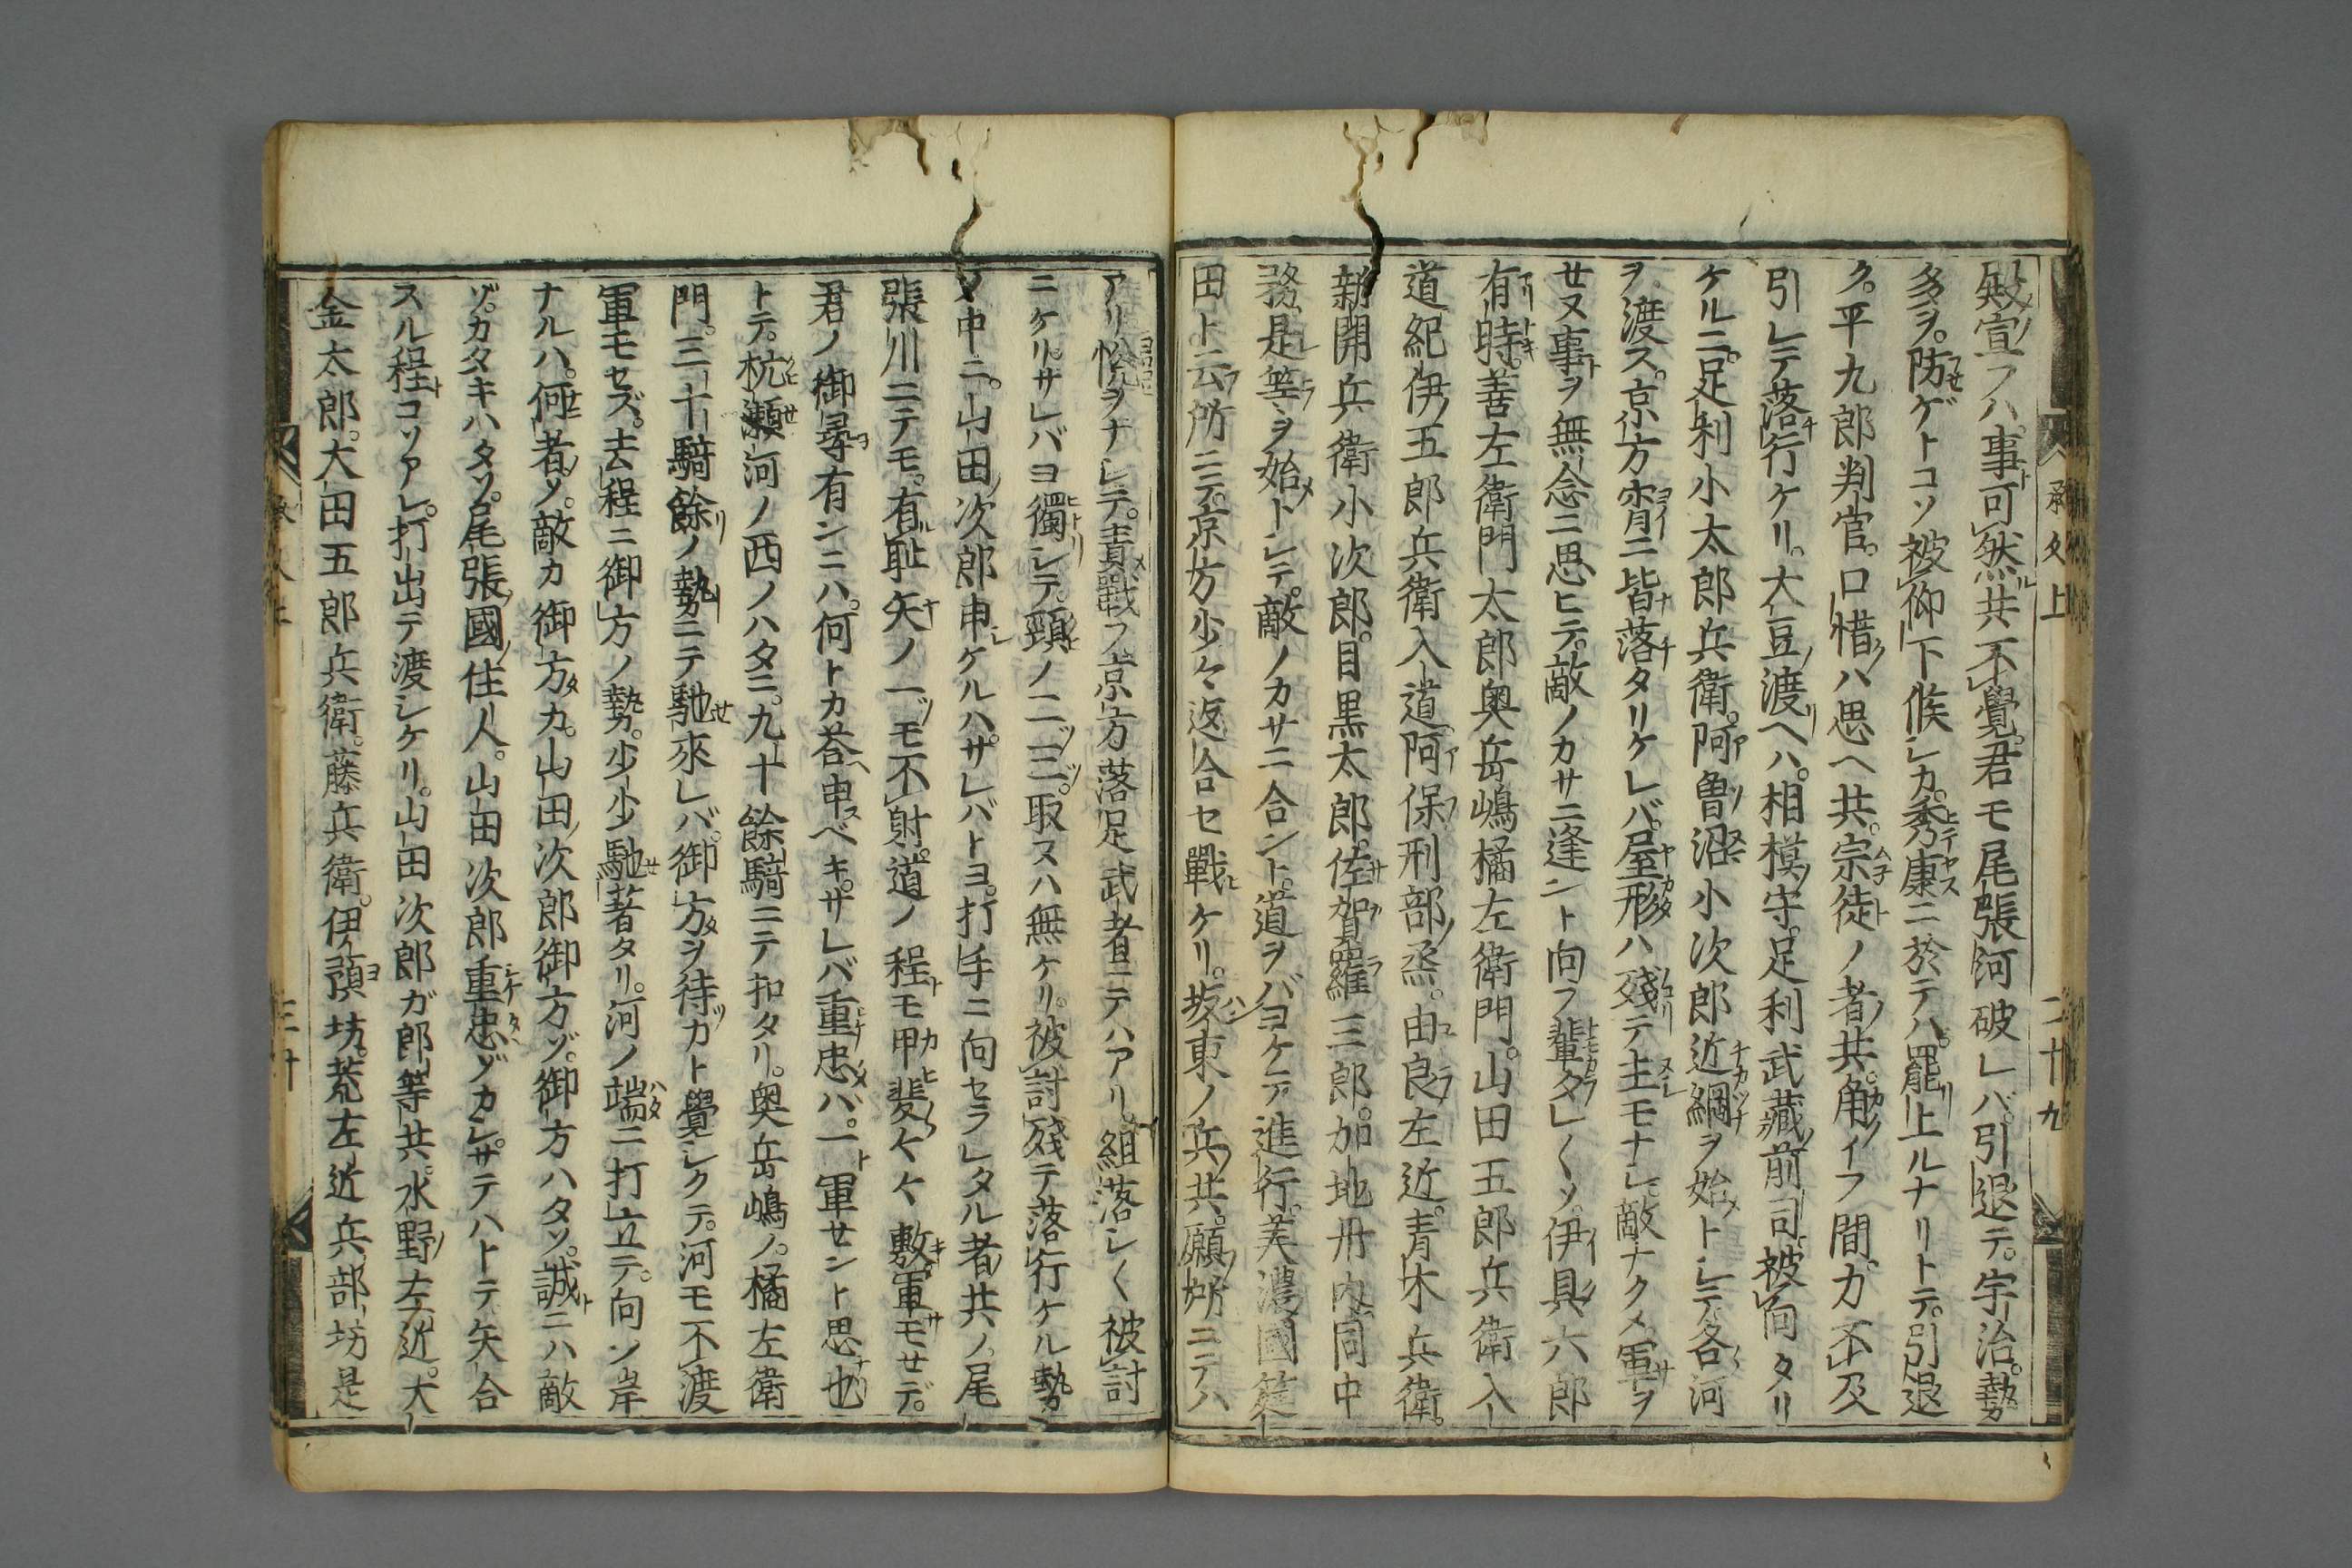 殿宣フハ。事可然共不覺。君モ尾張河破レバ。引退テ。宇治。勢
多ヲ。防ゲトコソ被仰下候シカ。秀康ニ於テハ。罷上ルナリトテ。引退
ク。平九郎判官。口惜ハ思ヘ共。宗徒ノ者共。角イフ間。力不及
引レテ落行ケリ。大豆渡ヘハ。相模守。足利武藏前司被向タリ
ケルニ。足利小太郎兵衛。阿曽沼小次郎近綱ヲ始トシテ。各河
ヲ渡ス。京方宵ニ皆落タリケレバ。屋形ハ殘テ主モナシ。敵ナクメ軍ヲ
せヌ事ヲ無念ニ思ヒテ。敵ノカサニ逢ント向フ輩タレ〱ソ。伊具六郎
有時。善左衛門太郎奥岳嶋橘左衛門。山田五郎兵衛入
道紀伊五郎兵衛入道阿保刑部烝。由良左近。青木兵衛。
新開兵衛小次郎。目黒太郎。佐賀羅三郎。加地丹内。同中
務是等ヲ始トシテ。敵ノカサニ合ント。道ヲバヨケテ進行。美濃國筵
田ト云所ニテ。京方少々返合セ戰ケリ。坂東ノ兵共。願所ニテハ
アリ悦ヲナシテ。責戰フ京方落足武者ニテハアリ。組落シ〱被討
ニケリ。サレバヨ獨シテ。頸ノ二三。取ヌハ無ケリ。被討殘テ落行ケル勢
ノ中ニ。山田次郎申ケルハ。サレバトヨ。打手ニ向セラレタル者共ノ。尾
張川ニテモ。有恥矢ノ一モ不射。道ノ程モ甲斐々々敷軍モせデ。
君ノ御尋有ンニハ。何トカ荅申ベキ。サレバ重忠バ。一軍せント思也
トテ。杭瀬河ノ西ノハタニ。九十餘騎ニテ扣タリ。奥岳嶋ノ。橘左衛
門。三十騎餘ノ勢ニテ馳來レバ。御方ヲ待カト覺シクテ。河モ不渡
軍モセズ。去程ニ御方ノ勢。少少馳著タリ。河ノ端ニ打立テ。向ン岸
ナルハ。何者ソ。敵カ御方カ。山田次郎御方ゾ。御方ハタソ。誠ニハ敵
ゾ。カタキハタソ。尾張國住人。山田次郎重忠ゾカシ。サテハトテ矢合
スル程コソアレ。打出テ渡シケリ。山田次郎ガ郎等共。水野左近。大
金太郎。大田五郎兵衛。藤兵衛。伊預坊。荒左近兵部坊是
承久上
二十九
三十